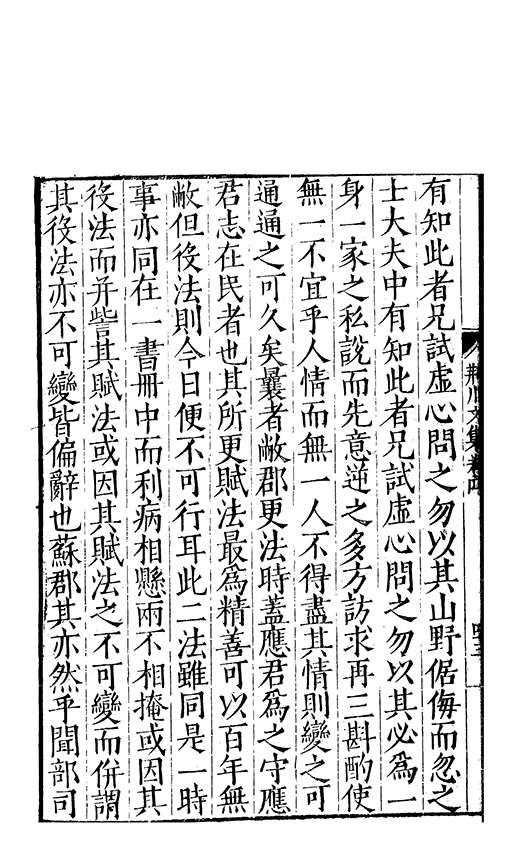 有知此者兄試虛心問之勿以其山野倨侮而忽之
士大夫中有知此者兄試虛心問之勿以其必爲一
身一家之私說而先意逆之多方訪求再三斟酌使
無一不宜乎人情而無一人不得盡其情則變之可
通通之可久矣曩者敝郡更法時蓋應君爲之守應
君志在民者也其所更賦法最爲精善可以百年無
敝但役法則今日便不可行耳此二法雖同是一時
事亦同在一書冊中而利病相懸兩不相掩或因其
役法而并訾其賦法或因其賦法之不可變而併謂
其役法亦不可變皆偏辭也蘇郡其亦然乎聞部司
荆川文集卷四
四十三